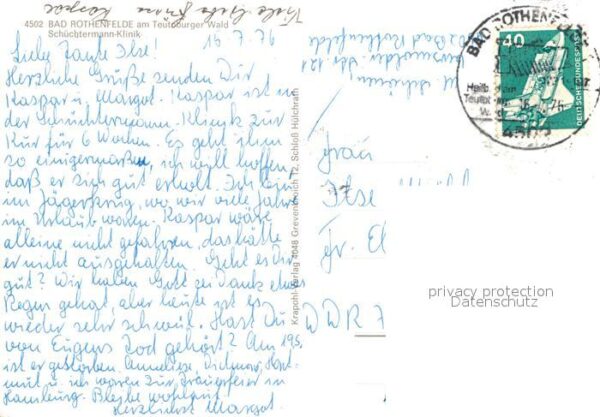 Viele liebe Grüße
Kaspar
4502 BAD ROTHENFELDE am Teutoburger Wald
Schüchtermann-Klinik
15.7.76
Liebe Tante Ilse!
Herzliche Grüße senden Dir
Kaspar u. Margot. Kaspar ist in
der Schüchtermann-Klinik zur
Kur für 6 Wochen. Es geht ihm
so einigermaßen, ich will hoffen,
daß er sich gut erholt. Ich bin
im Jägerkrug, wo wir viele Jahre
im Urlaub waren. Kaspar wäre
alleine nicht gefahren, das hätte
er nicht ausgehalten. Geht es Dir
gut? Wir haben Gott sei Dank etwas
Regen gehabt, aber heute ist es
wieder sehr schwül. Hast Du
von Eugens Tod gehört? Am 19.5.
ist er gestorben. Anneliese, Dietmar, Hart-
mut u. ich waren zur Trauerfeier in
Hamburg. Bleibe wohlauf.
Herzlichst Margot
Krapohl-Verlag 4048 Grevenbroich 12, Schloß Hülchrath
4502 Bad Rothenfelde
BAD ROTHENFELDE
Heilb. am
Teutob.
W
16.-7.76
4502
40
DEUTSCHE BUNDESPOST
Frau
Ilse
Gr.
DDR
privacy protection
Datenschutz